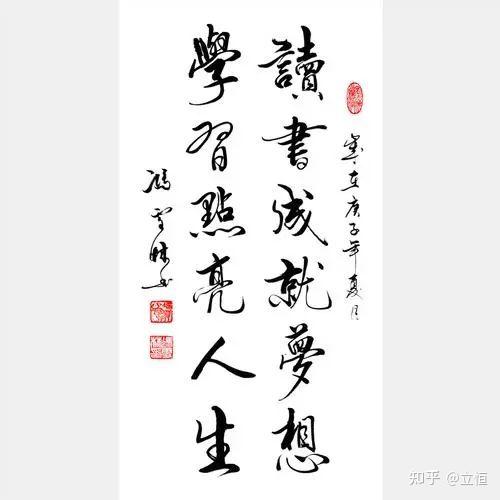 歲在庚子年夏月
讀書成就夢想
學習點亮人生
知乎 @立恒